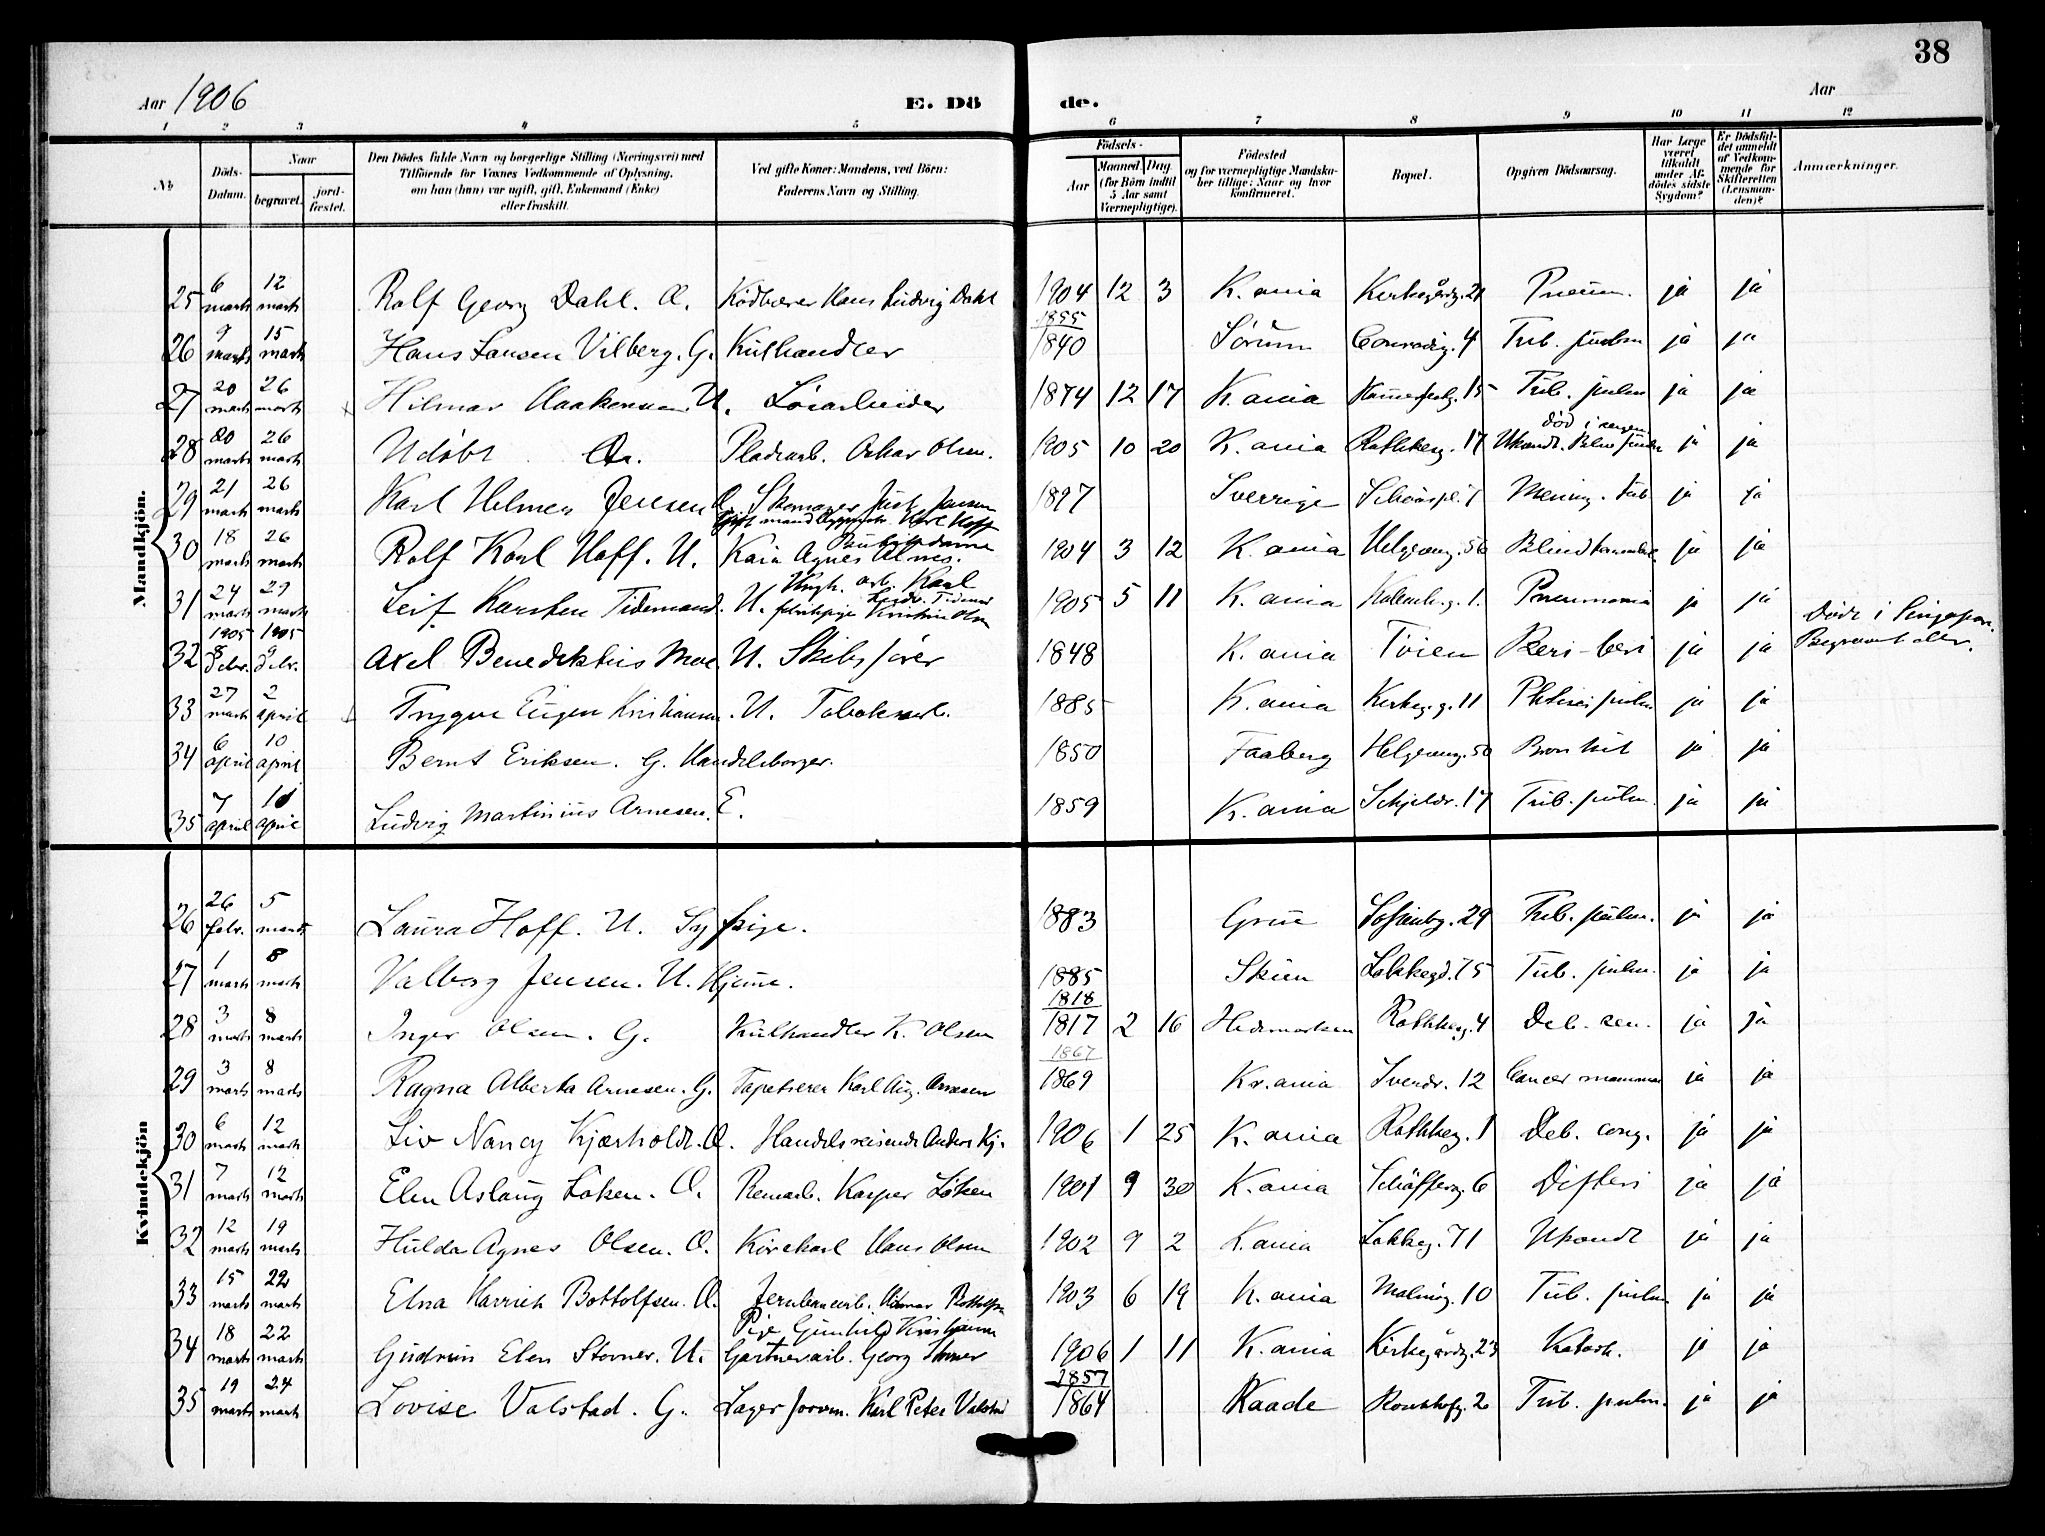 38
Aar 1906
E. Dö
de.
Aar
1 2 3 4 5 6 7 8 9 10 11 12
No
Döds-Datum.
Naar
begravet.
jord-fæstet.
Den Dödes fulde Navn og borgerlige Stilling (Næringsvei) med Tilföiende for Voxnes Vedkommende af Oplysning, om han (hun) var ugift, gift, Enkemand (Enke) eller fraskilt.
Ved gifte Koner: Mandens, ved Börn: Faderens Navn og Stilling.
Födsels-
Aar
Maaned
Dag
(for Börn indtil 5 Aar samt Værnepligtige).
Födested og for værnepligtige Mandskaber tillige: Naar og hvor konfirmeret.
Bopæl.
Opgiven Dödsaarsag.
Har Læge været tilkaldt under Afdödes sidste Sygdom?
Er Dödsfaldet anmeldt af Vedkommende for Skifteretten (Lensmanden)?
Anmærkninger.
Mandkjön.
25 6 marts 12 marts Rolf Georg Dahl. Æ. Kødbærer Hans Ludvig Dahl 1904 12 3 K.ania Kirkegårdg. 21 Pneum. ja ja
26 9 marts 15 marts Hans Hansen Vilberg. G. Kulhandler 1855 1840 Sørum Conradig. 4 Tub. pulm ja ja
27 20 marts 26 marts Hilmar Haakensen U. Løsarbeider 1874 12 17 K.ania 15 Tub. pulm ja ja
28 20 marts 26 marts Udøbt Æ. Pladearb. Oskar Olsen. 1905 10 20 K.ania Rathkeg. 17 Ukendt. død i sengen ja ja
29 21 marts 26 marts Karl Hilmer Jensen Æ. Skomager Just Jensen 1897 Sverrige Schouspl. 7 Mening. tub ja ja
30 18 marts 26 marts Rolf Karl Hoff. U. Gift mand Karl Hoff Butikdame Kaia Agnes Alnes. 1904 3 12 K.ania Helgesensg. 56 ja ja
31 24 marts 29 marts Leif Karsten Tidemand. U. Ungk. arb. Karl Ludv. Tidemand fabrikpige Kristine Olsen 1905 5 11 K.ania 1. Pneumonia ja ja
32 1905 8 debr. 1905 9 debr. Axel Benediktius Moe U. Skibsfører 1848 K.ania Tvien Beri-beri ja ja Døde i Singapore. Begravet der.
33 27 marts 2 april Trygve Eugen Kristiansen. U. Tobaksarb. 1885 K.ania Kirkeg.g. 11 Phtisis pulm ja ja
34 6 april 10 april Bernt Eriksen. G. Handelsborger. 1850 Faaberg Helgesensg. 50 Bronkit ja ja
35 7 april april Ludvig Martinius Arnesen. E. 1859 K.ania Schjeldr. 17 Tub. pulm. ja ja
Kvindekjön
26 26 febr. 5 marts Laura Hoff. U. Sypige. 1883 Grue Sofienbg. 29 Tub. pulm. ja ja
27 1 marts 8 marts Valborg Jensen. U. Hjeme. 1885 Skien Lakkegd. 75 Tub. pulm. ja ja
28 3 marts 8 marts Inger Olsen. G. Kulhandler K. Olsen 1818 1817 2 16 Hedemarken Rathkeg. 4 Deb. sen. ja ja
29 3 marts 8 marts Ragna Alberta Arnesen. G. Tapetserer Karl Aug. Arnesen 1867 1869 Kr.ania Sverdr. 12 Cancer mammae ja ja
30 6 marts 12 marts Liv Nancy Kjærholdt. Æ. Handelsreisende Anders Kj. 1906 1 25 K.ania Rathkeg. 1 Deb. cong. ja ja
31 7 marts 12 marts Elen Aslaug Løken. Æ. Remarb. Kasper Løken 1901 9 30 K.ania Schäfferg. 6 Difteri ja ja
32 12 marts 19 marts Hulda Agnes Olsen. Æ. Kørekarl Hans Olsen 1902 9 2 K.ania Lakkeg. 71 Ukendt ja ja
33 15 marts 22 marts Elna Harriet Bottolfsen. Æ. Jernbanearb. Hilmar Bottolfsen 1903 6 19 K.ania Malmøg. 10 Tub. pulm ja ja
34 18 marts 22 marts Gudrun Elen Storner. U. Pige Gunhild Kristiansen Gartnerarb. Georg Storner 1906 1 11 K.ania Kirkegårdg. 23 Katarh. ja ja
35 19 marts 24 marts Lovise Valstad. G. Lagerforvm. Karl Peter Valstad 1857 1864 Raade 2 Tub. pulm. ja ja